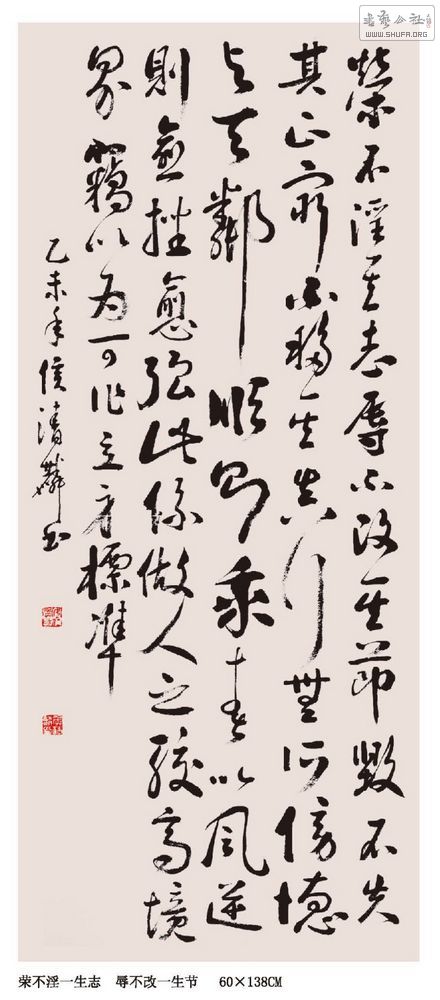 書藝公社
WWW.SHUFA.ORG
榮不淫一生志辱不改一生節毀不失
其正窮不移一生真行無所傍德
與天鄰順即乘春以風逆
則愈挫愈強此係做人之較高境
界竊以為可作立身標準
乙未年侯清麟書
荣不淫一生志 辱不改一生节 60×138CM